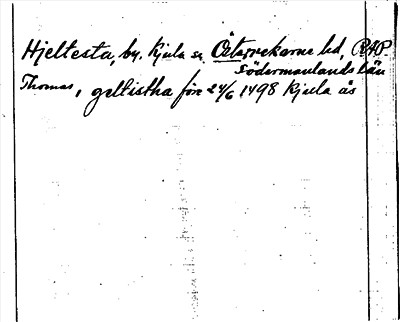 Hjeltesta, by. Kjula sn Österrekarne hd, RAP.
Södermanlands län
Thomas, geltistha före 24/6 1498 Kjula ås